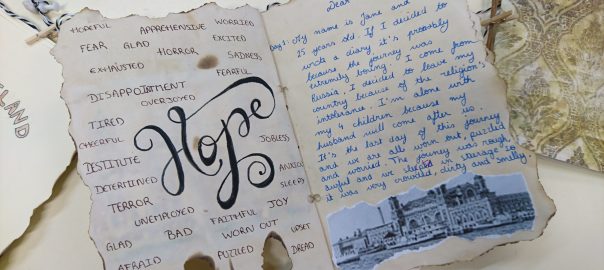 HOPEFUL APPREHENSIVE WORRIED
FEAR GLAD EXCITED
HORROR
EXHAUSTED SADNESS
FEARFUL
DISAPPOINTMENT
OVERJOYED
TIRED
CHEERFUL
Hope
JOBLESS
DESTITUTE
ANXIOUS
DETERMINED
SLEEPY
TERROR
UNEMPLOYED FAITHFUL JOY
GLAD BAD WORN OUT UPSET
AFRAID PUZZLED DREAD
Dear
Day 1: My name is Jane and
25 years old. If I decided to
write a diary it's probably
because the journey was
extremely boring. I come from
Russia. I decided to leave my
country because of the religion's
intolerance. I'm alone with
my 4 children because my
husband will come after us.
It's the last day of this journey
and we are all worn out, puzzled
and worried. The journey was rough,
awful and we slept in steerage so
it was very crowded, dirty and smelly.
ELAND